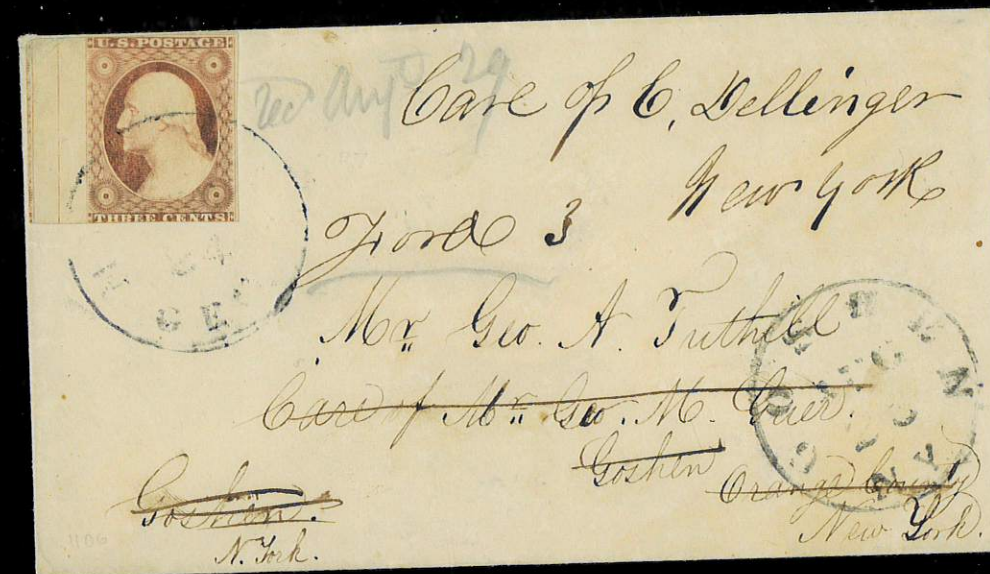 U.S. POSTAGE
THREE CENTS
Recd Augt 29
Care of C. Dellinger
New York
Ford 3
24
GEO
Mr. Geo. A. Tuthill
Care of Mr. Geo. M. Grier.
Goshen
Orange County
New York.
Goshen.
N. York.
GOSHEN
N.Y.
1106